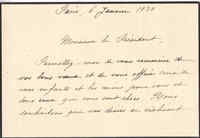 Paris, 6 Janvier 1930
Monsieur le Président,
Permettez-moi de vous remercier de
vos bons vœux et de vous offrir ceux de
mes enfants et les miens pour vous et
tous ceux qui vous sont chers. Nous
souhaitons que vos désirs se réalisent